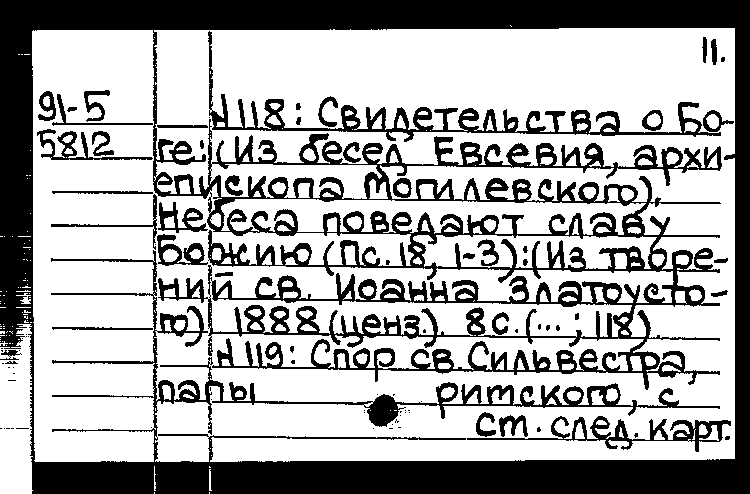 11.
91-5
5812
N 118: Свидетельства о Бо-
ге: (Из бесед Евсевия, архи-
епископа Могилевского).
Небеса поведают славу
Божию (Пс. 18, 1-3): (Из творе-
ний св. Иоанна Златоусто-
го). 1888 (ценз.). 8 с. (...; 118)
N 119: Спор св. Сильвестра,
папы римского, с
см. след. карт.